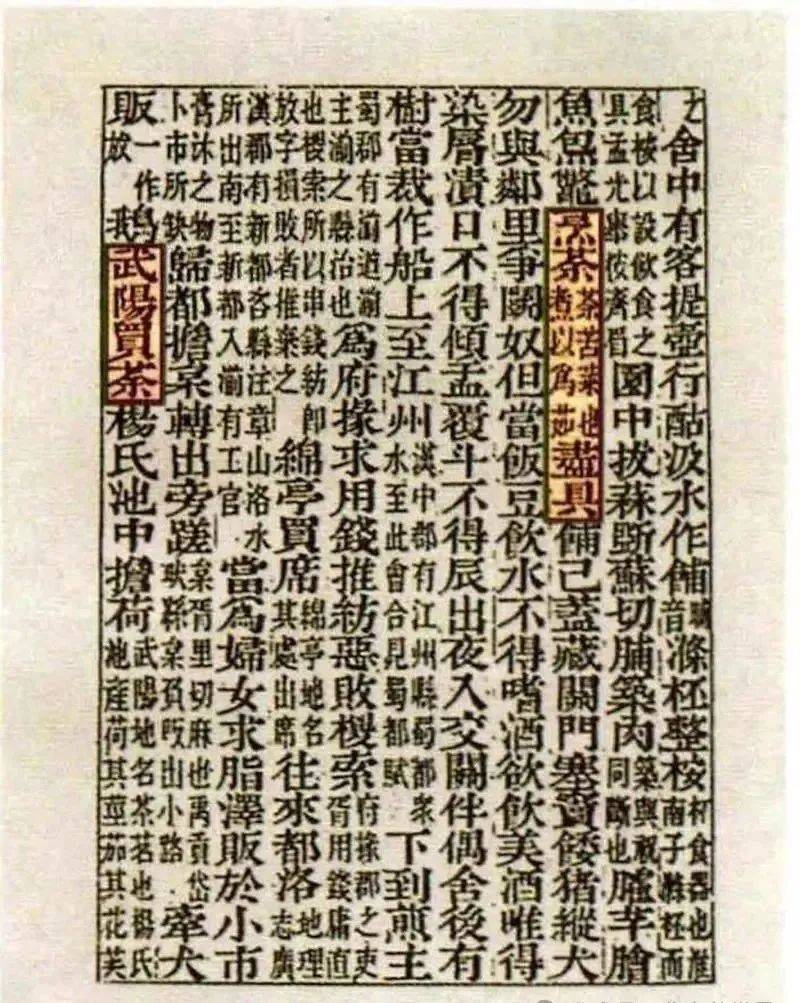 之舍中有客提壺行酤汲水作餔音晡滌柸整桉柸食器也淮南子柸而
食桉以設飲食之具孟光舉桉齊眉園中拔蒜斷蘇切脯築肉築與祝同斷也臛芋膾
魚炰鱉烹茶茶苦菜也煮以爲茹盡具餔已蓋藏關門塞竇餧猪縱犬
勿與鄰里爭鬭奴但當飯豆飲水不得嗜酒欲飲美酒唯得
染脣漬口不得傾盂覆斗不得辰出夜入交關伴偶舍後有
樹當裁作船上至江州漢中郡有江州縣蜀郡衆水至此會合見蜀都賦下到煎主
蜀郡有湔道湔主湔之縣治也爲府掾求用錢推紡惡敗椶索府掾郡之吏胥用錢庸直
也椶索所以串錢紡即放字損敗者推棄之綿亭買席綿亭地名其處出席往來都洛地理志廣
漢郡有新都各縣注章山洛水所出南至新都入湔有工官當爲婦女求脂澤販於小市
膏沐之物卜市所缺歸都擔枲轉出旁蹉枲胥里切麻也禹貢岱畎絲枲販出小路牽犬
販一作放鵝武陽買茶楊氏池中擔荷武陽地名茶茗也楊氏池産荷其莖茄其花芙